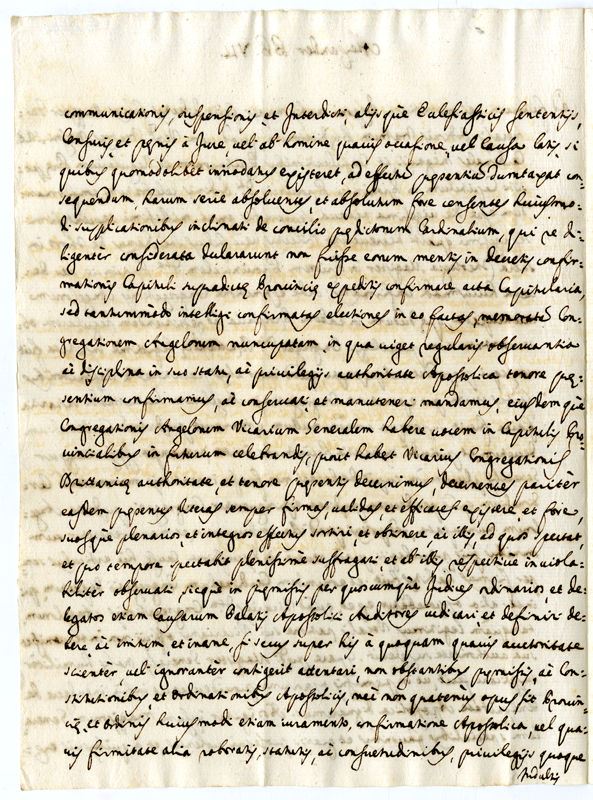 communicationis, suspensionis et Interdicti, alijsque Ecclesiasticis sententijs,
Censuris et pęnis à Jure, vel ab homine quavis occasione, vel causa latis, si
quibus quomodolibet innodatus existeret, ad effectũ pręsentiũ dumtaxat con=
sequendum, harum serie absolventes, et absolutum fore censentes huiusmo=
di supplicationibus inclinati de concilio pędictorum Cardinalium, qui re di=
ligenter considerata declararunt non fuisse eorum mentis in decretis confir=
mationis Capituli supradictę Provincię expeditis confirmare acta Capitularia,
sed tantummodo intelligi confirmatas electiones in eo factas, memoratã Con=
gregationem Angelorum nuncupatam, in qua viget regularis observantia
ac disciplina in suo statu, ac privilegijs authoritate Apostolica tenore prę=
sentium confirmamus, ac conservari et manuteneri mandamus, eiusdemque
Congregationis Angelorum Vicarium Generalem habere vocem in Capitulis Pro=
vincialibus in futurum celebrandis, prout habet Vicarius Congregationis
Brittanicę authoritate, et tenore pręsentis decernimus, decernentes pariter
easdem pręsentes literas semper firmas, validas et efficaces existere, et fore,
suosque plenarios, et integros effectus sortiri et obtinere, ac illis, ad quos spectat,
et pro tempore spectabit plenissime suffragari et ab illis respective inviola=
biliter observari sicque in pręmissis per quoscumque Judices ordinarios et de=
legatos etiam Causarum Palatij Apostolici Auditores iudicari et definiri de=
bere, ac irritum, et inane, si secus super his à quoquam quavis auctoritate
scienter, vel ignoranter contigerit attentari, non obstantibus pręmissis, ac Con=
stitutionibus, et Ordinationibus Apostolicis, nec non quatenus opus sit Provin=
cię, et Ordinis huiusmodi etiam iuramento, confirmatione Apostolica, vel qua=
vis firmitate alia roboratis, statutis, ac consuetudinibus, privilegijs quoque
Indultis